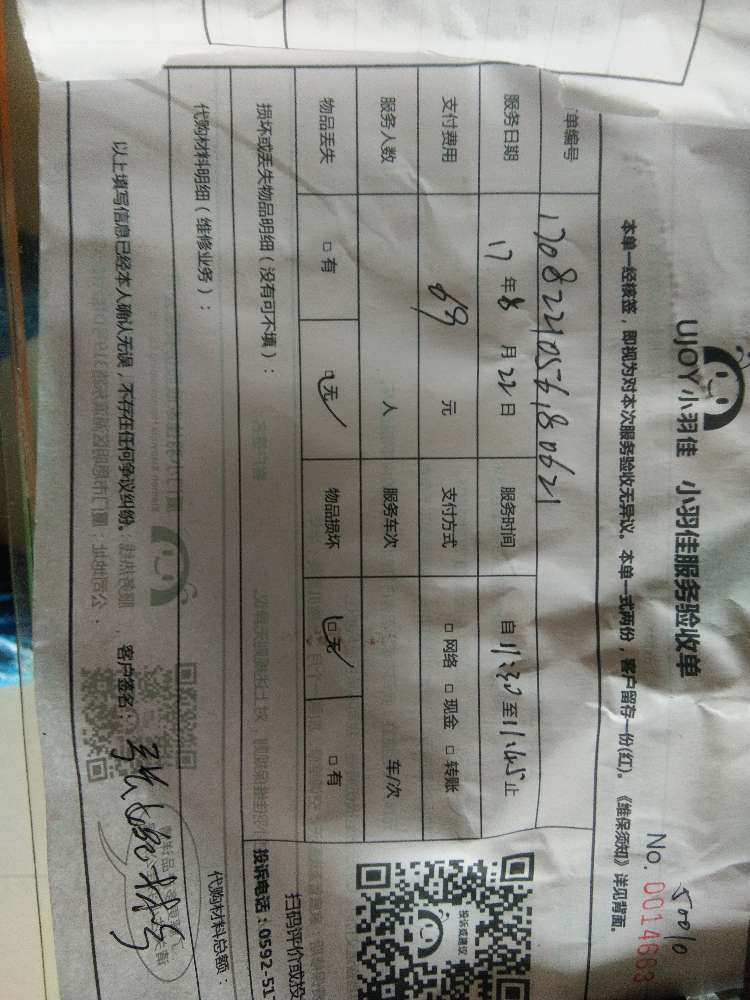 UJOY小羽佳 小羽佳服务验收单
No. 0014603
本单一经核签，即视为对本次服务验收无异议。本单一式两份，客户留存一份(红)。《维保须知》详见背面。
单编号 1708221056180621
服务日期 17 年 8 月 22 日 服务时间 自 11:30 至 11:45 止
支付费用 69 元 支付方式 □ 网络 □ 现金 □ 转账
服务人数 人 服务车次 车/次
物品丢失 □ 有 □ 无 物品损坏 □ 无 □ 有
损坏或丢失物品明细（没有可不填）：
投诉或建议
扫码评价或投
投诉电话：0592-51
代购材料明细（维修业务）：
代购材料总额：
以上填写信息已经本人确认无误，不存在任何争议纠纷。 客户签名：